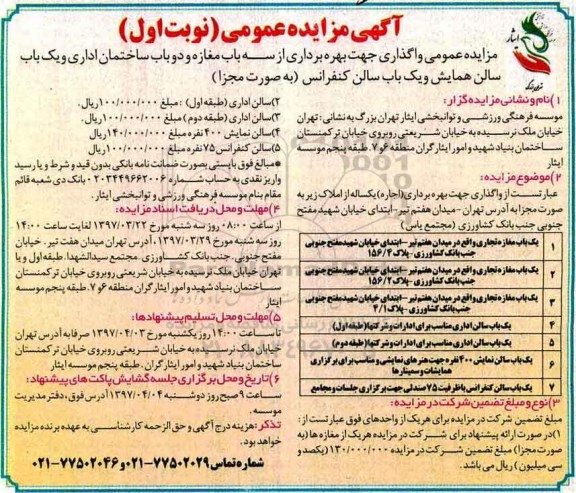 آگهی مزایده عمومی (نوبت اول)
مزایده عمومی واگذاری جهت بهره برداری از سه باب مغازه و دو باب ساختمان اداری و یک باب
سالن همایش و یک باب سالن کنفرانس (به صورت مجزا)
۱) نام و نشانی مزایده گزار:
موسسه فرهنگی ورزشی و توانبخشی ایثار تهران بزرگ به نشانی: تهران
خیابان ملک نرسیده به خیابان شریعتی روبروی خیابان ترکمنستان
ساختمان بنیاد شهید و امور ایثارگران منطقه ۶ و ۷. طبقه پنجم موسسه
ایثار
۲) موضوع مزایده:
عبارتست از واگذاری جهت بهره برداری (اجاره) یکساله از املاک زیر به
صورت مجزا به آدرس تهران - میدان هفتم تیر - ابتدای خیابان شهید مفتح
جنوبی جنب بانک کشاورزی (مجتمع یاس)
۱ یک باب مغازه تجاری واقع در میدان هفتم تیر - ابتدای خیابان شهید مفتح جنوبی
جنب بانک کشاورزی - پلاک ۱۵۶/۴
۲ یک باب مغازه تجاری واقع در میدان هفتم تیر - ابتدای خیابان شهید مفتح جنوبی
جنب بانک کشاورزی - پلاک ۱۵۶/۲
۳ یک باب مغازه تجاری واقع در میدان هفتم تیر - ابتدای خیابان شهید مفتح جنوبی
جنب بانک کشاورزی - پلاک ۴/۱
۴ یک باب سالن اداری مناسب برای ادارات و شرکتها (طبقه اول)
۵ یک باب سالن اداری مناسب برای ادارات و شرکتها (طبقه دوم)
۶ یک باب سالن نمایش ۴۰۰ نفره جهت هنرهای نمایشی و مناسب برای برگزاری
همایشات و سمینارها
۷ یک باب سالن کنفرانس با ظرفیت ۷۵ صندلی جهت برگزاری جلسات و مجامع
۳) نوع و مبلغ تضمین شرکت در مزایده:
مبلغ تضمین شرکت در مزایده برای هر یک از واحدهای فوق عبارتست از:
۱) در صورت ارائه پیشنهاد برای شرکت در مزایده هر یک از مغازه ها (به
صورت مجزا) مبلغ تضمین شرکت در مزایده ۱۳۰/۰۰۰/۰۰۰ (یکصد و
سی میلیون) ریال می باشد.
۲) سالن اداری (طبقه اول): مبلغ ۱۰۰/۰۰۰/۰۰۰ ریال.
۳) سالن اداری (طبقه دوم): مبلغ ۱۰۰/۰۰۰/۰۰۰ ریال.
۴) سالن نمایش ۴۰۰ نفره مبلغ ۱۴۰/۰۰۰/۰۰۰ ریال.
۵) سالن کنفرانس ۷۵ نفره مبلغ ۱۰۰/۰۰۰/۰۰۰ ریال.
* مبالغ فوق بایستی بصورت ضمانت نامه بانکی بدون قید و شرط و یا رسید
واریز نقدی به حساب شماره ۲۰۳۴۴۹۶۶۲۰۰۶ بانک دی شعبه قائم
مقام بنام موسسه فرهنگی ورزشی و توانبخشی ایثار.
۴) مهلت و محل دریافت اسناد مزایده:
از ساعت ۰۸:۰۰ روز سه شنبه مورخ ۱۳۹۷/۰۳/۲۲ لغایت ساعت ۱۴:۰۰
روز سه شنبه مورخ ۱۳۹۷/۰۳/۲۹، آدرس تهران میدان هفتم تیر، خیابان
مفتح جنوبی، جنب بانک کشاورزی، مجتمع سیدالشهدا، طبقه اول و یا
تهران خیابان ملک نرسیده به خیابان شریعتی روبروی خیابان ترکمنستان
ساختمان بنیاد شهید و امور ایثارگران منطقه ۶ و ۷. طبقه پنجم موسسه
ایثار
۵) مهلت و محل تسلیم پیشنهادها:
تا ساعت ۱۴:۰۰ روز یکشنبه مورخ ۱۳۹۷/۰۴/۰۳ صرفا به آدرس تهران
خیابان ملک نرسیده به خیابان شریعتی روبروی خیابان ترکمنستان
ساختمان بنیاد شهید و امور ایثارگران. طبقه پنجم موسسه ایثار
۶) تاریخ و محل برگزاری جلسه گشایش پاکت های پیشنهاد:
ساعت ۹ صبح روز دوشنبه ۱۳۹۷/۰۴/۰۴ آدرس فوق، دفتر مدیریت
موسسه.
تذکر: هزینه درج آگهی و حق الزحمه کارشناسی به عهده برنده مزایده
خواهد بود.
شماره تماس ۷۷۵۰۲۰۲۹-۰۲۱ و ۷۷۵۰۲۰۴۶-۰۲۱